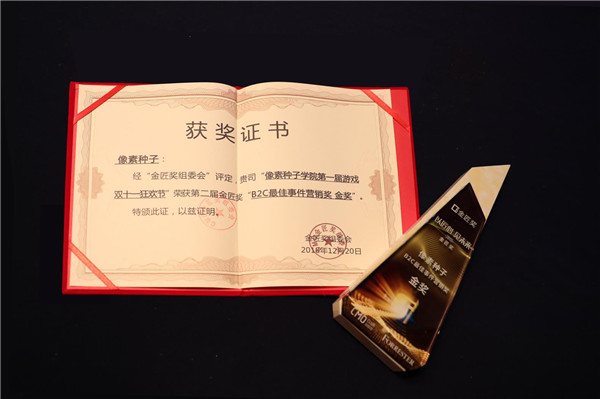 获奖证书
像素种子：
经“金匠奖组委会”评定，贵司“像素种子学院第一届游戏
双十一狂欢节”荣获第二届金匠奖“B2C最佳事件营销奖 金奖”。
特颁此证，以兹证明。
金匠奖组委会
2018年12月20日
金匠奖
像素种子
B2C最佳事件营销奖
金奖
LMO
FORRESTER